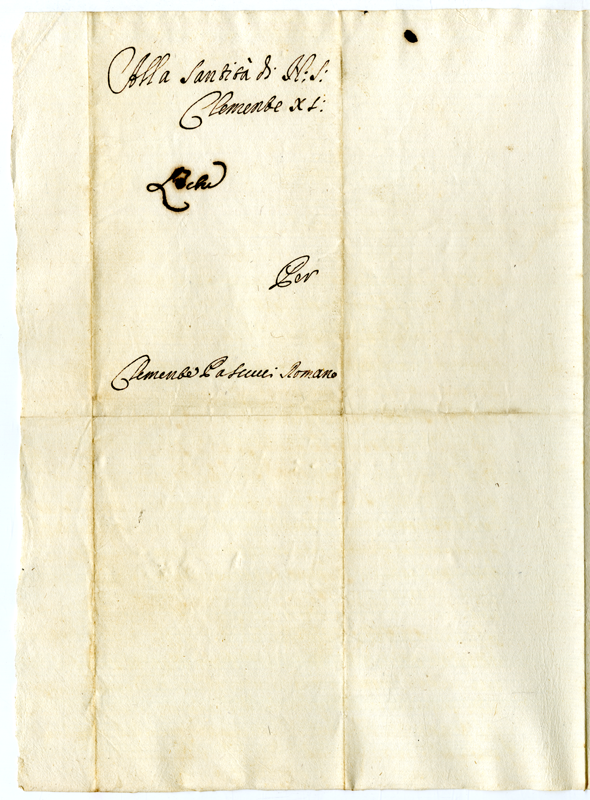 Alla Santità di N: S:
Clemente XI:
Per
Clemente Pascucci Romano